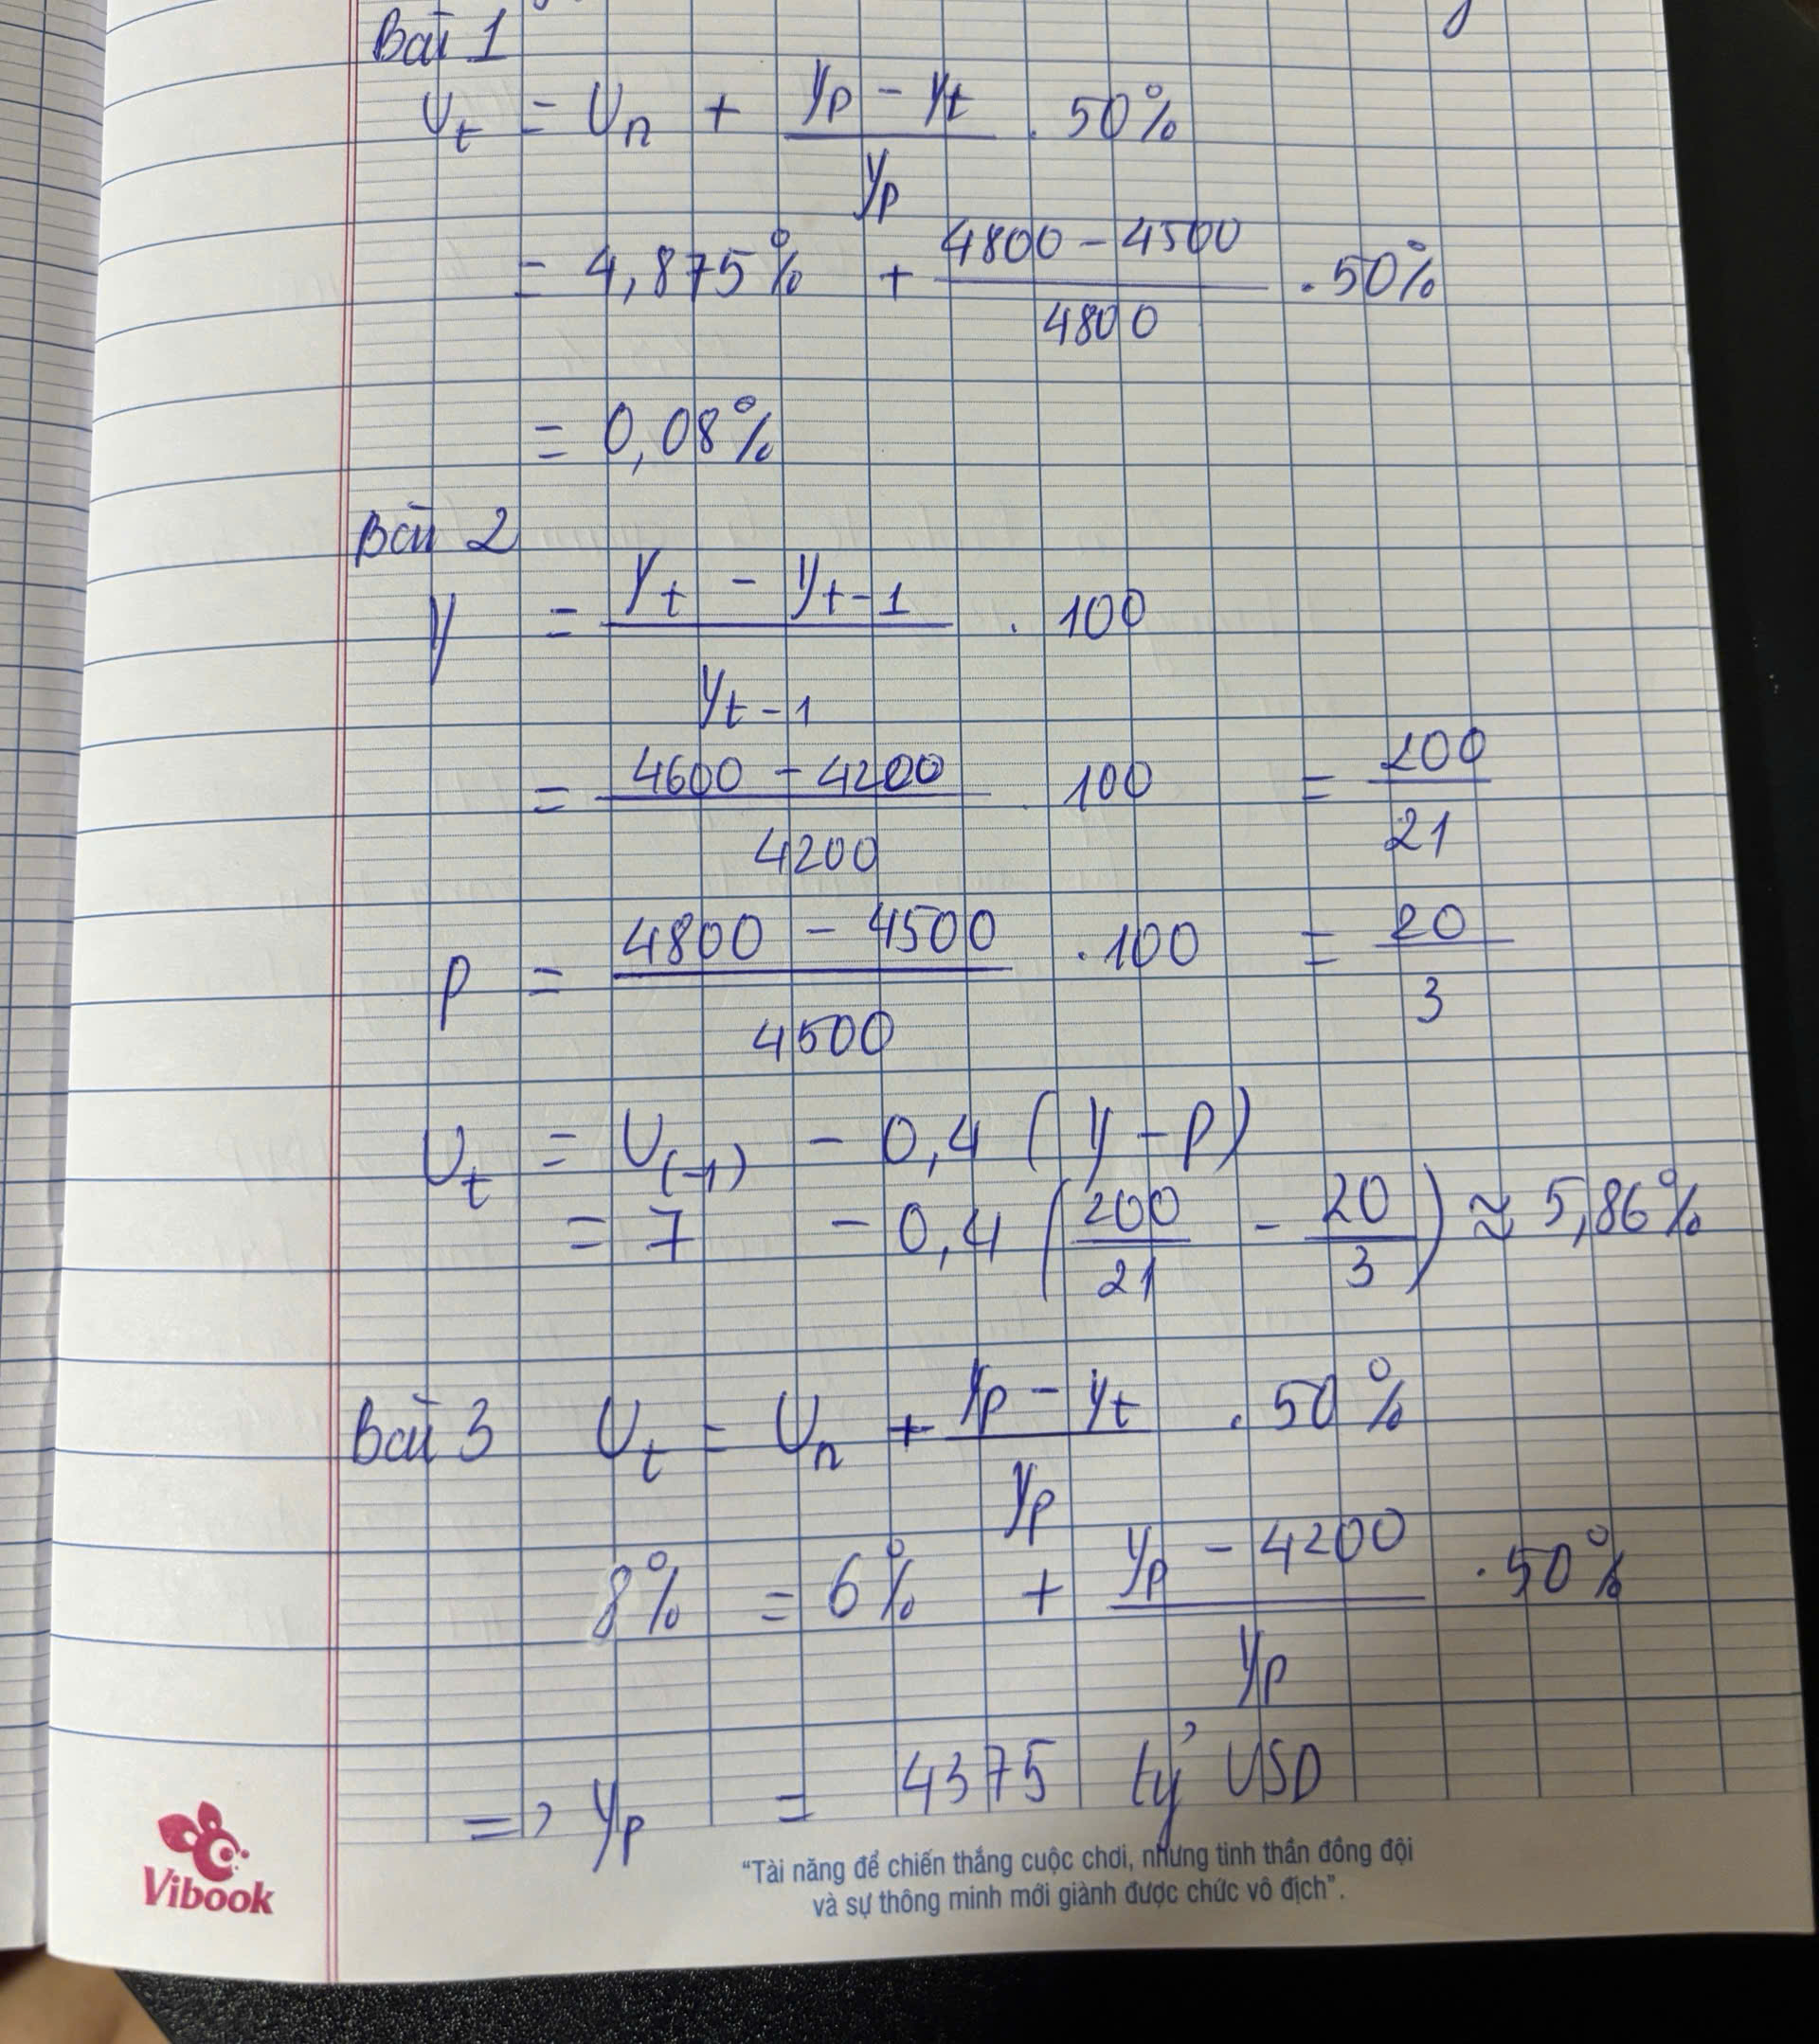 Bài 1
U_t = U_n + (Y_p - Y_t)/Y_p . 50%
= 4,875% + (4800 - 4500)/4800 . 50%
= 0,08%
Bài 2
Y = (Y_t - Y_{t-1})/Y_{t-1} . 100
= (4600 - 4200)/4200 . 100 = 200/21
P = (4800 - 4500)/4500 . 100 = 20/3
U_t = U_(-1) - 0,4 (Y - P)
= 7 - 0,4 (200/21 - 20/3) ≈ 5,86%
Bài 3 U_t = U_n + (Y_p - Y_t)/Y_p . 50%
8% = 6% + (Y_p - 4200)/Y_p . 50%
=> Y_p = 4375 tỷ USD
Vibook
“Tài năng để chiến thắng cuộc chơi, nhưng tinh thần đồng đội
và sự thông minh mới giành được chức vô địch”.